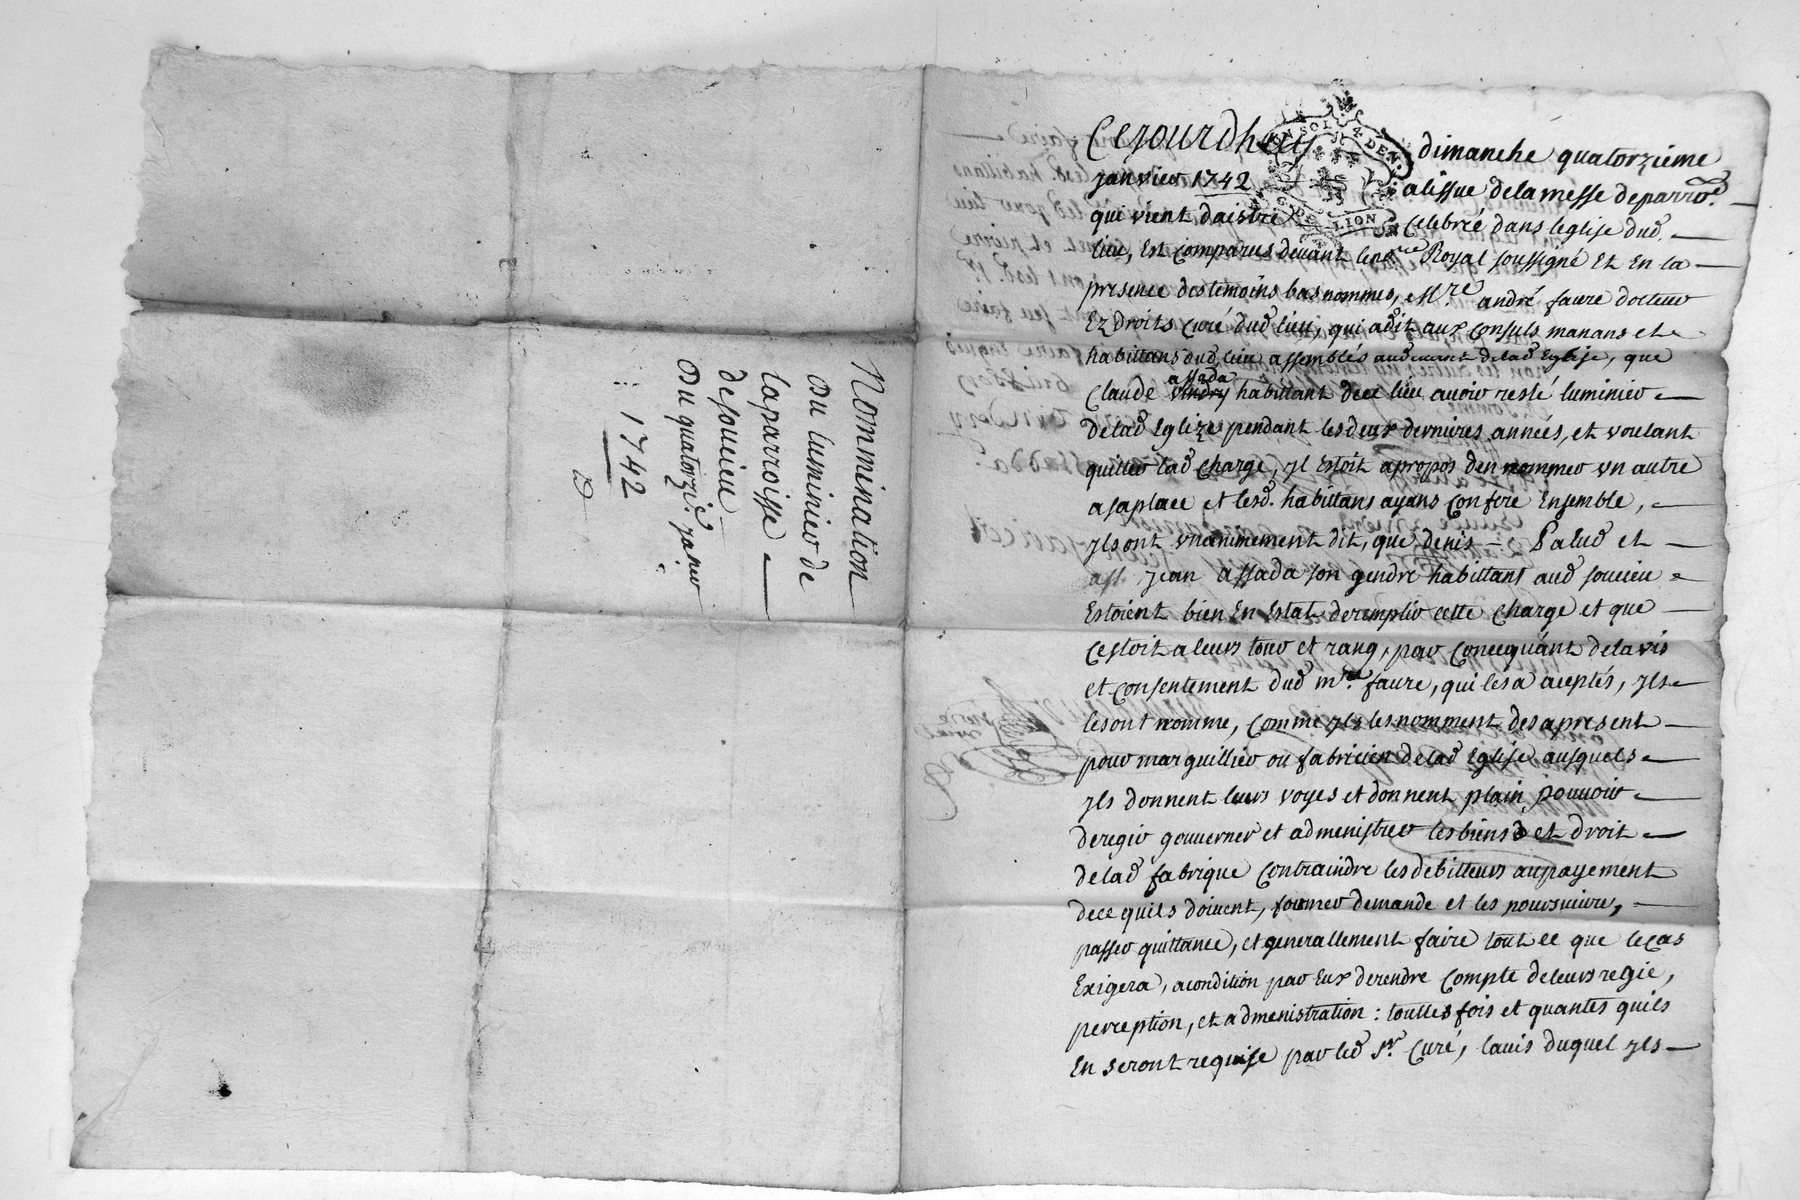 Nommination
Du luminier de
laparroisse
desoucieu
Du quatorzie. janver
1742
Cejourdhuy dimanche quatorzième
janvier 1742 alissue delamesse deparroe.
qui vient daistre Celebrée dans leglise dud.
lieu, Est comparus devant leno.re Royal soussigné Et En la
presence des témoins bas nommes, M.re andré faure docteur
Ez droits curé dud lieu, qui adit aux consuls manans et
habittans dud lieu assemblés audevant delad Eglise, que
Claude assada habittant dece lieu avoir resté luminier
delad Eglize pendant les deux dernieres années, et voulant
quitter lad Charge, yl Estoit apropos den nommer un autre
asaplace et lesd. habittans ayans Confere Ensemble,
yls ont unanimement dit, que denis Palud et
ass. jean assada son gendre habittans aud soucieu
Estoient bien En Estat deremplir cette Charge et que
Cestoit aleurs tour et rang, par Concequánt delavis
et Consentement dud m.re faure, qui lesa aceptés, yls
lesont nomme, Comme yls les nomment des apresent
pour marguillier ou fabricien delad Eglise ausquels
yls donnent leurs voyes et donnent plain pouvoir
deregir gouverner et administrer les biens et droit
delad fabrique Contraindre les debitteurs aupayement
dece quils doivent, former demande et les poursuivre,
passer quittance, et generallement faire tout ce que lecas
Exigera, acondition par Eux derendre Compte deleurs regie,
perception, et admenistration : touttes fois et quantes quils
En seront requise par led Sr. Curé, lavis duquel yls